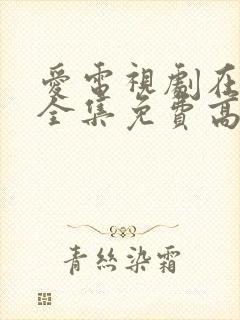 愛電視劇在
全集免費高
青絲染霜